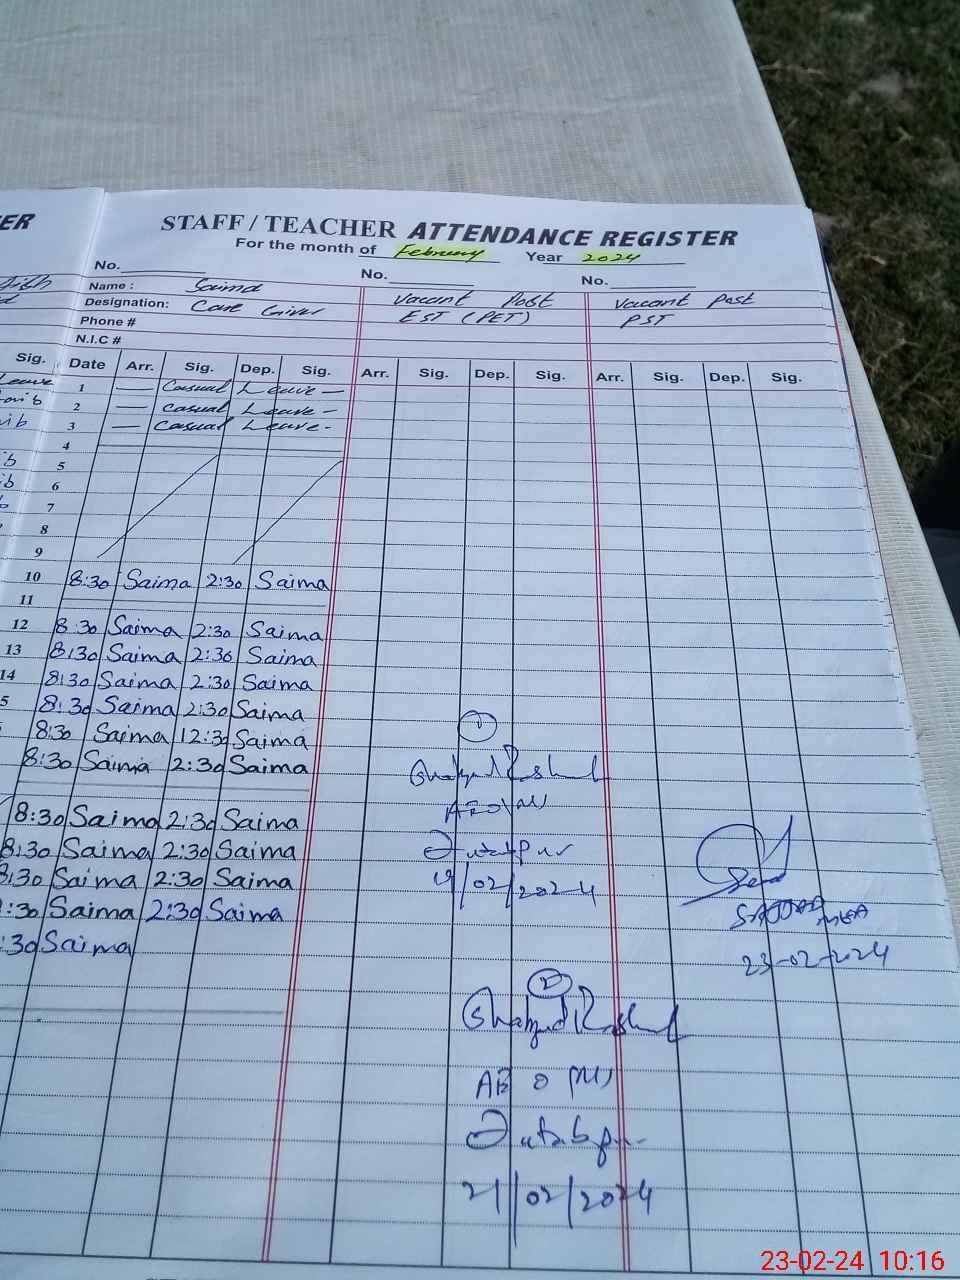 ER
STAFF / TEACHER ATTENDANCE REGISTER
For the month of February Year 2024
No. No. No.
Name : Saima Vacant Post Vacant Post
Designation: Care Giver EST (PET) PST
Phone #
N.I.C #
Sig. Date Arr. Sig. Dep. Sig. Arr. Sig. Dep. Sig. Arr. Sig. Dep. Sig.
Leave 1 — Casual Leave —
2 — Casual Leave -
3 — Casual Leave -
4
5
6
7
8
9
10 8:30 Saima 2:30 Saima
11
12 8:30 Saima 2:30 Saima
13 8:30 Saima 2:30 Saima
14 8:30 Saima 2:30 Saima
5 8:30 Saima 2:30 Saima
8:30 Saima 12:30 Saima
8:30 Saima 2:30 Saima
8:30 Saima 2:30 Saima
8:30 Saima 2:30 Saima
8:30 Saima 2:30 Saima
:30 Saima 2:30 Saima
:30 Saima
1
AEO (M)
19/02/2024
MEA
23-02-2024
2
AEO (M)
21/02/2024
23-02-24 10:16